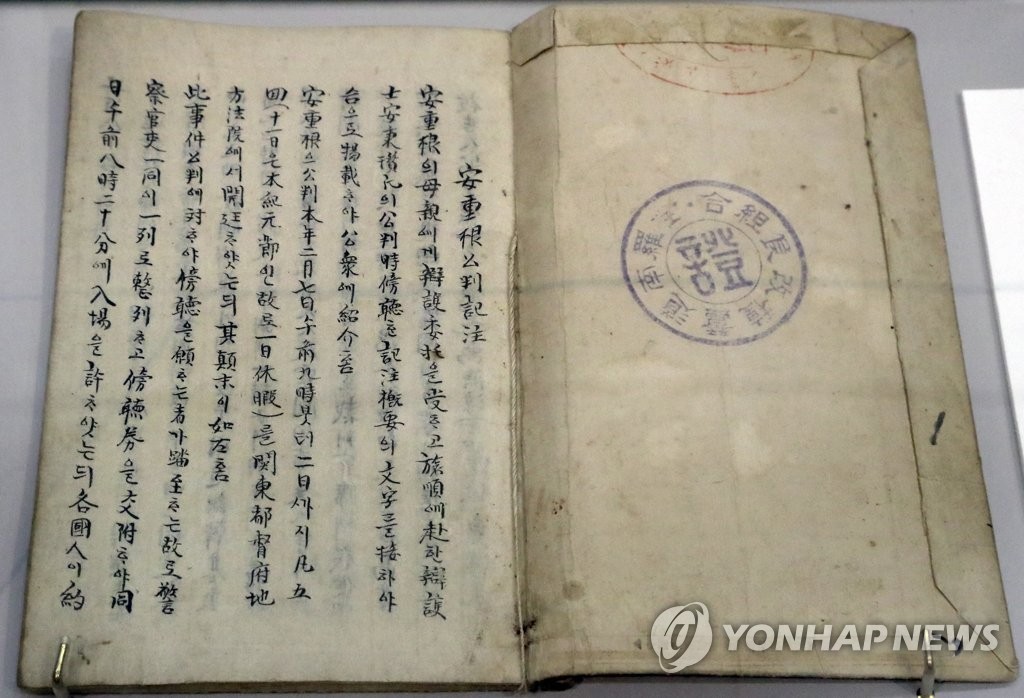 安重根公判記注
安重根의母親에게辯護委托을受ᄒᆞ고旅順에赴한辯護
士安秉瓚氏의公判時傍聽ᄒᆞᆫ記注槪要의文字를接하야
台으로揚載ᄒᆞ야公衆에紹介홈
安重根의公判本年二月七日午前九時붓터二日ᄭᅡ지凡五
回(十一日은本紀元節인故로一日休暇)를関東都督府地
方法院에서開廷ᄒᆞ얏는ᄃᆡ其顚末이如左홈
此事件公判에対ᄒᆞ야傍聽을願ᄒᆞ는者가踏至ᄒᆞ는故로警
察官吏一同이一列로整列ᄒᆞ고傍聽券을交附ᄒᆞ야同
日午前八時二十分에入場을許ᄒᆞ얏는ᄃᆡ各國人이約
YONHAP NEWS